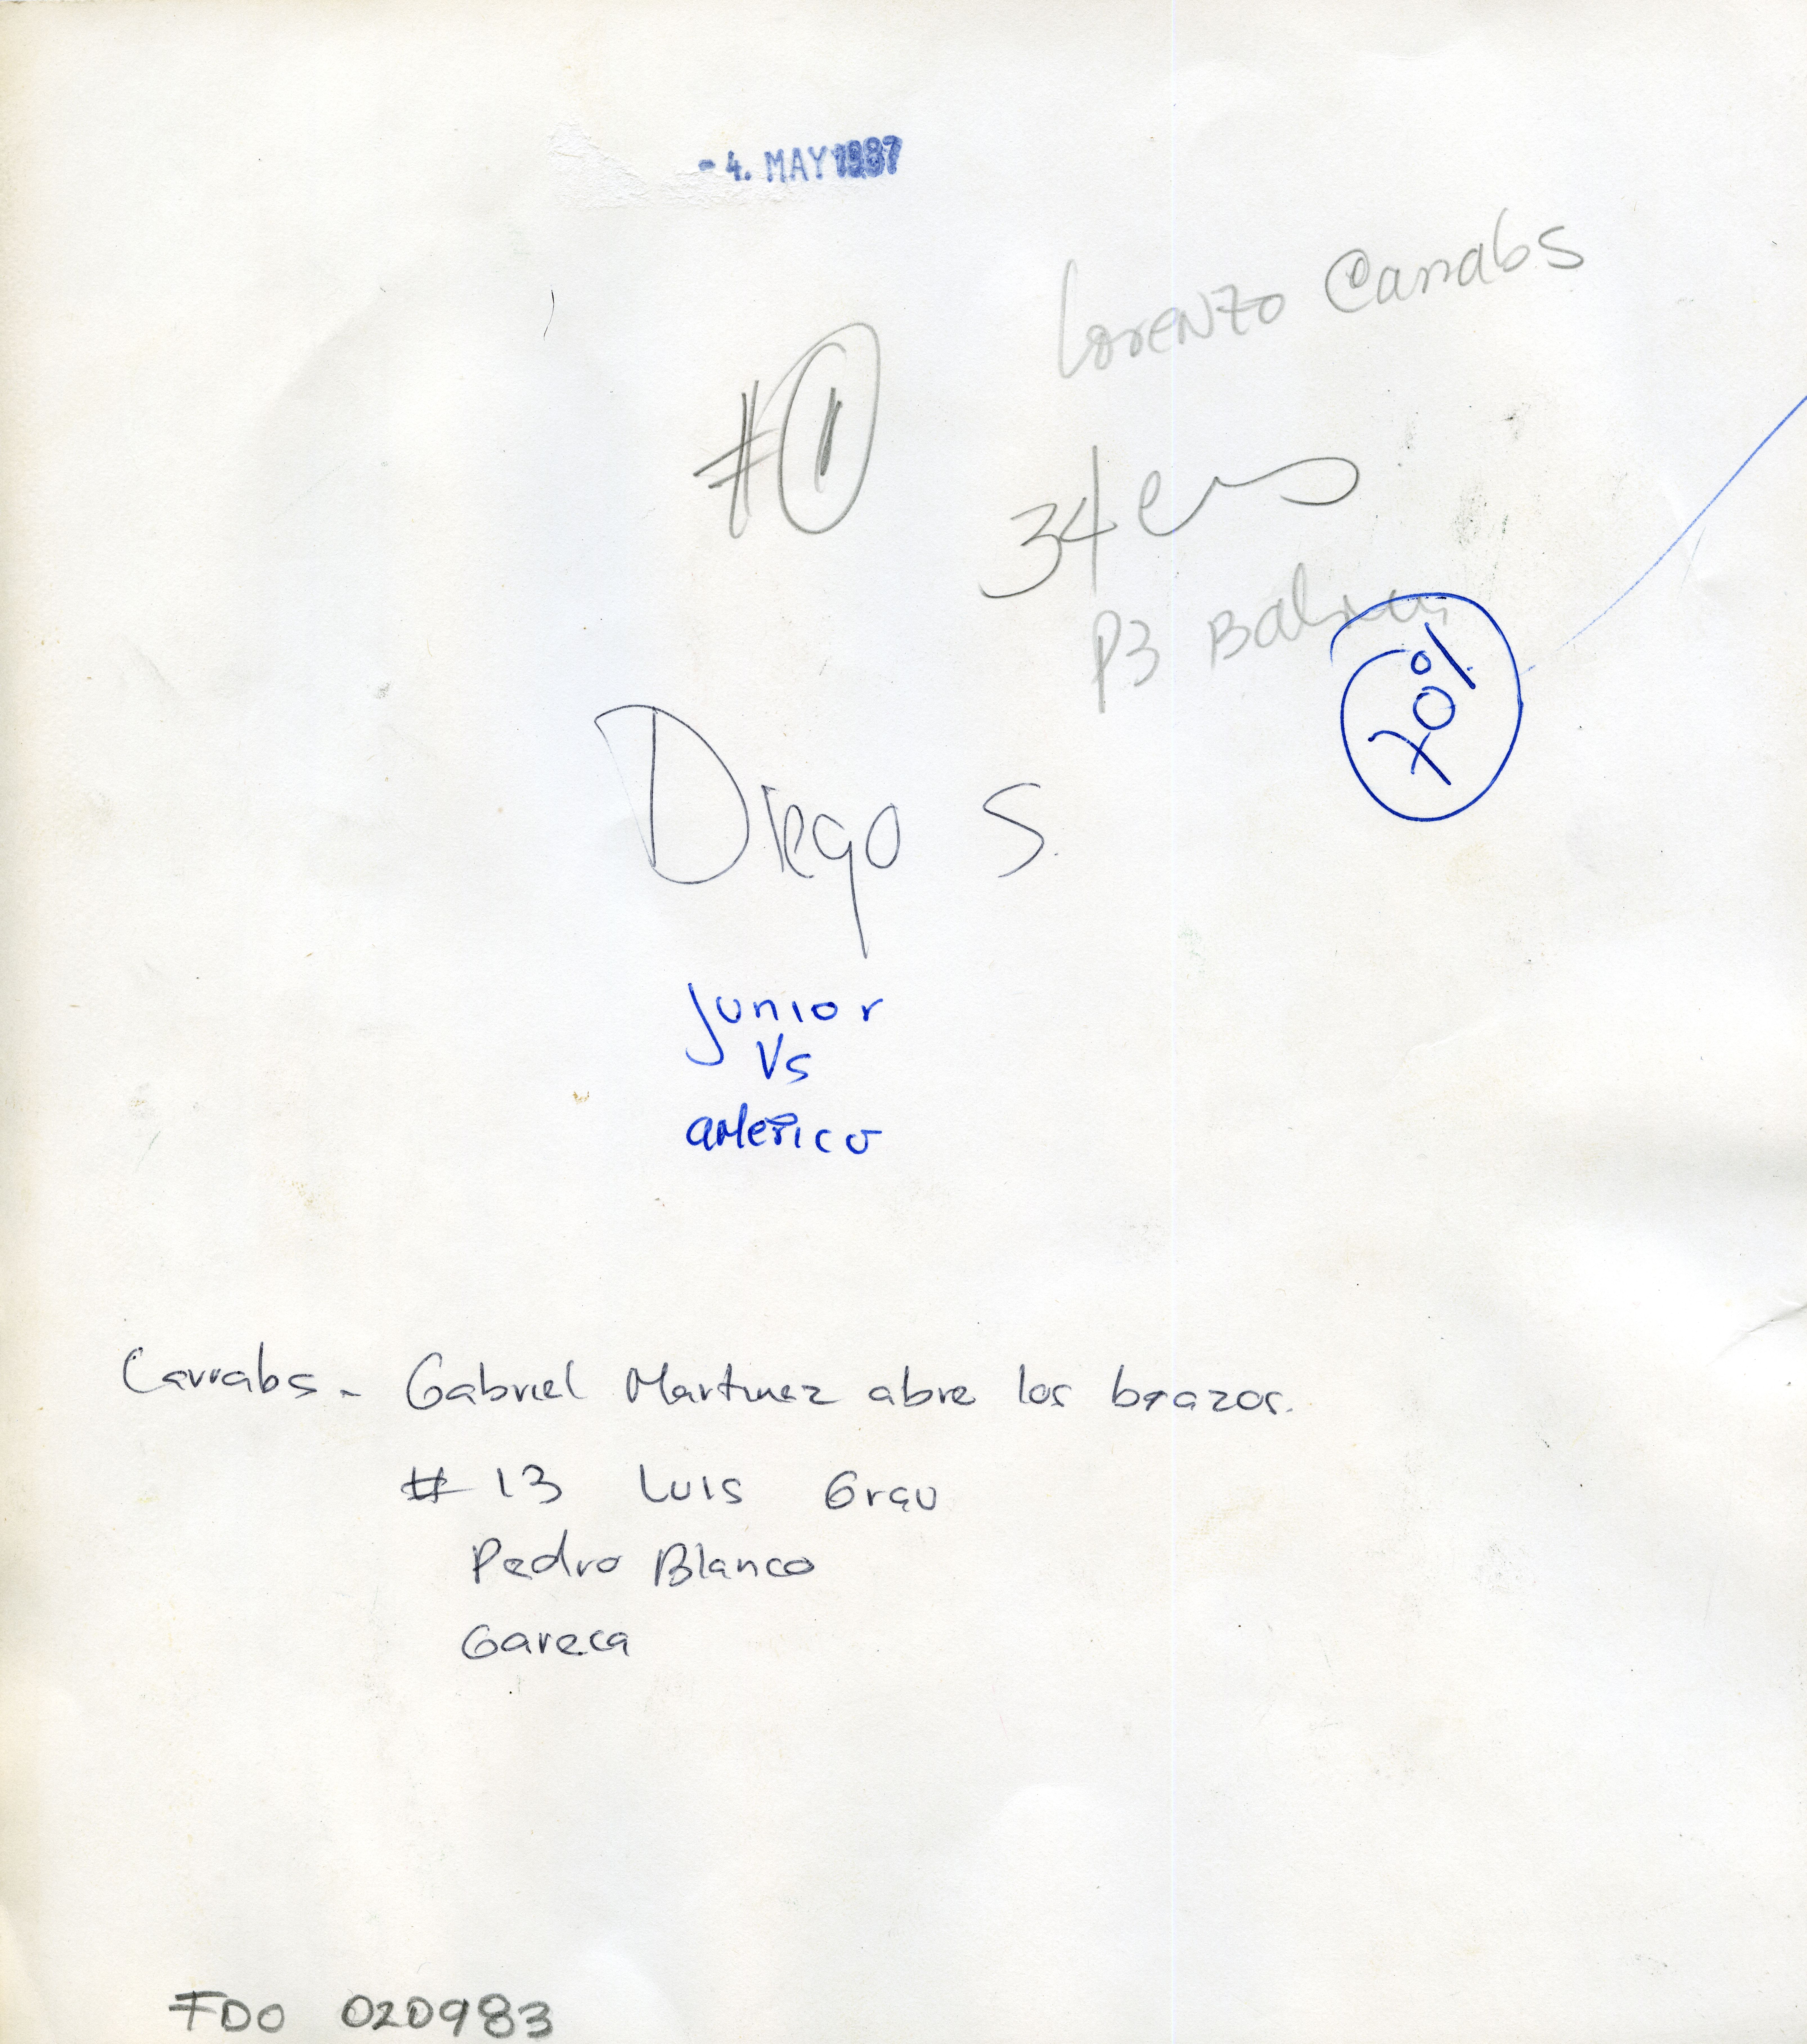 - 4. MAY 1987
Lorenzo Carrabs
#1
34
P3
70%
Diego S.
Junior
Vs
américa
Carrabs - Gabriel Martinez abre los brazos.
# 13 Luis Grau
Pedro Blanco
Gareca
FDO 020983